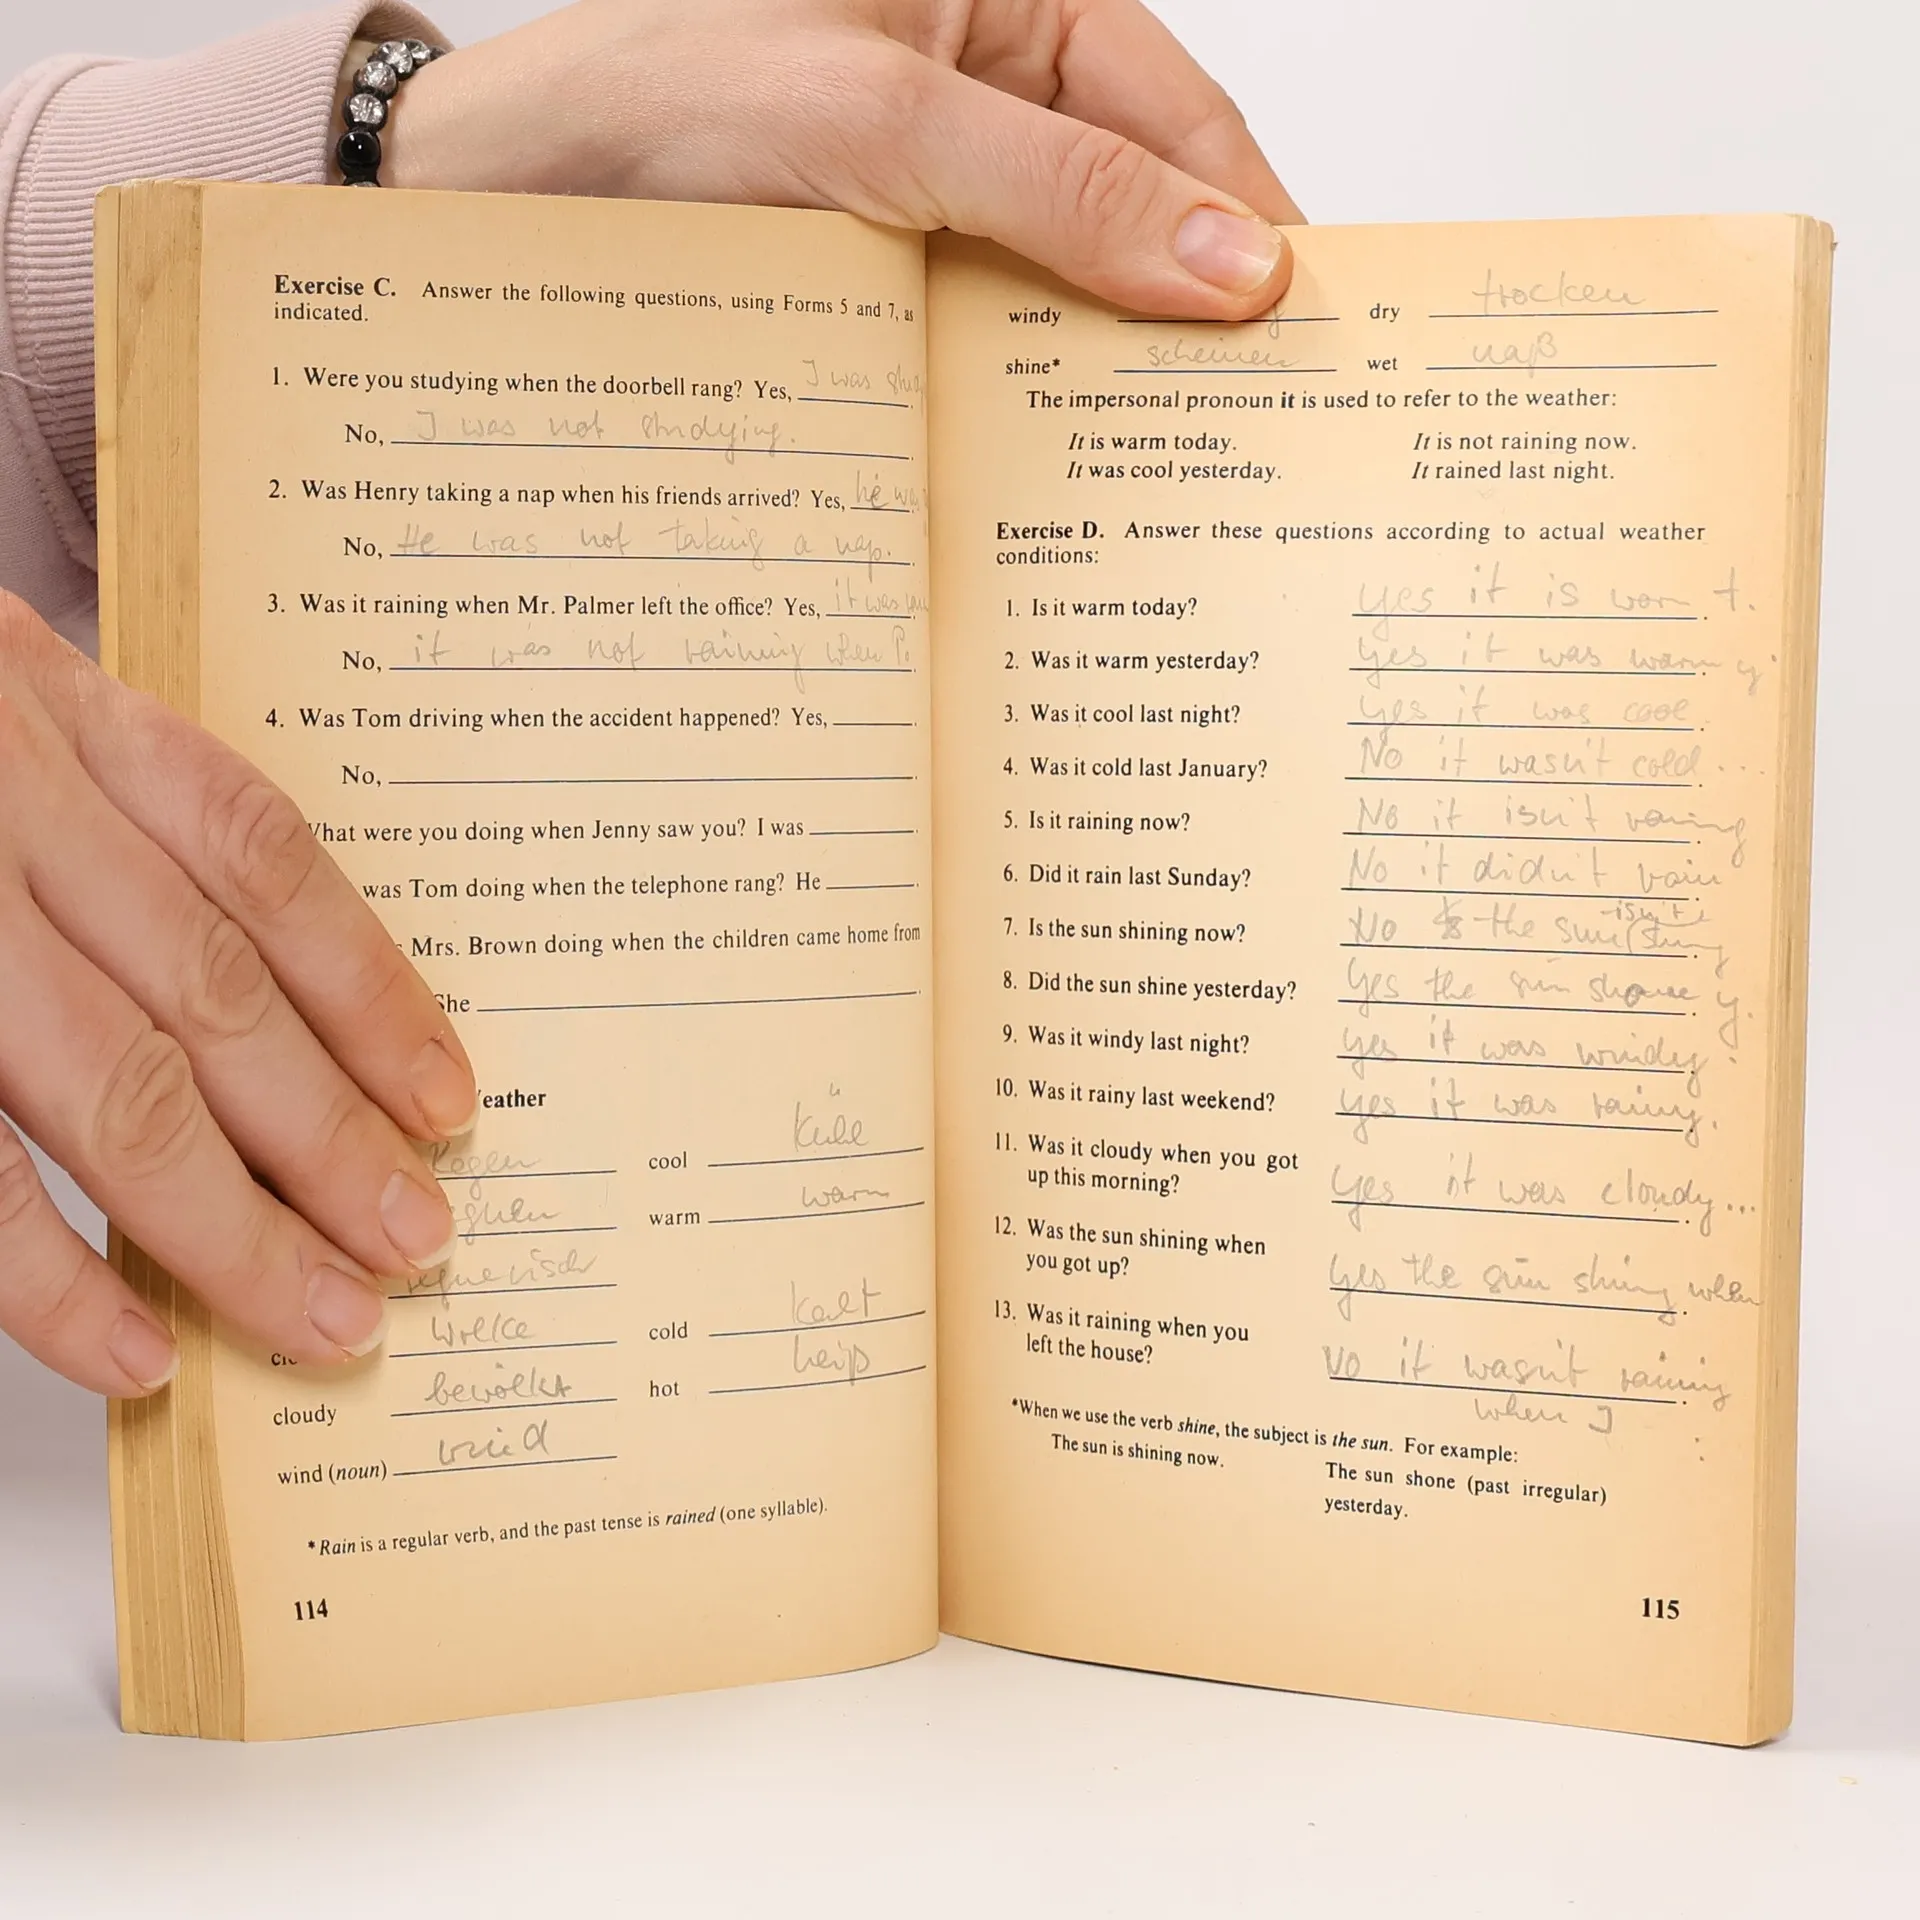 Exercise C. Answer the following questions, using Forms 5 and 7, as
indicated.
1. Were you studying when the doorbell rang? Yes, I was
No, I was not studying.
2. Was Henry taking a nap when his friends arrived? Yes, he was
No, He was not taking a nap.
3. Was it raining when Mr. Palmer left the office? Yes, it was
No, it was not raining when P.
4. Was Tom driving when the accident happened? Yes,
No,
were you doing when Jenny saw you? I was
was Tom doing when the telephone rang? He
Mrs. Brown doing when the children came home from
She
kühl
Regen cool
warm warm
regnerisch
Wolke cold kalt
cloudy bewölkt hot heiß
wind (noun) wind
*Rain is a regular verb, and the past tense is rained (one syllable).
114
windy dry trocken
shine* scheinen wet naß
The impersonal pronoun it is used to refer to the weather:
It is warm today. It is not raining now.
It was cool yesterday. It rained last night.
Exercise D. Answer these questions according to actual weather
conditions:
1. Is it warm today? yes it is worm t.
2. Was it warm yesterday? yes it was warm y.
3. Was it cool last night? yes it was cool.
4. Was it cold last January? No it wasn't cold...
5. Is it raining now? No it isn't raining
6. Did it rain last Sunday? No it didn't rain
isn't
7. Is the sun shining now? No the sun
8. Did the sun shine yesterday? yes the sun shone y.
9. Was it windy last night? yes it was windy.
10. Was it rainy last weekend? yes it was rainy.
11. Was it cloudy when you got
up this morning? yes it was cloudy...
12. Was the sun shining when
you got up? yes the sun shining when
13. Was it raining when you
left the house? No it wasn't raining
when I
*When we use the verb shine, the subject is the sun. For example:
The sun is shining now. The sun shone (past irregular)
yesterday.
115